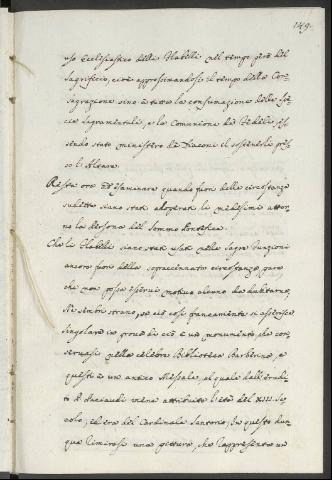 149.
uso Ecclesiastico delli Flabelli nel tempo però del
Sagrificio, cioè approssimandosi il tempo della Con-
sagrazione sino a tutta la consumazione delle Spe-
cie Sagramentali, e la Comunione de Fedeli, es-
sendo stato ministero de Diaconi il sostenerli pres-
so l'Altare.
Resta ora ad esaminare quando fuori delle circostanze
suddette siano stati adoperati li medesimi attor-
no la Persona del Sommo Pontefice.
Che li Flabelli siano stati usati nelle Sagre Funzioni
ancora fuori della sopraccennata circostanza, pare
che non possa esservi motivo alcuno da dubitarne,
Nè sembri strano, se ciò così francamente si asserisce
Singolare in prova di ciò è un monumento, che con-
servasi nella celebre Biblioteca Barberina, e
questi è un antico Messale, al quale dall'erudi-
to P. viene attribuita l'età del XIII. Se-
colo, ed era del Cardinale Santorio, In questo dun-
que rimirasi una pittura, che rappresenta un